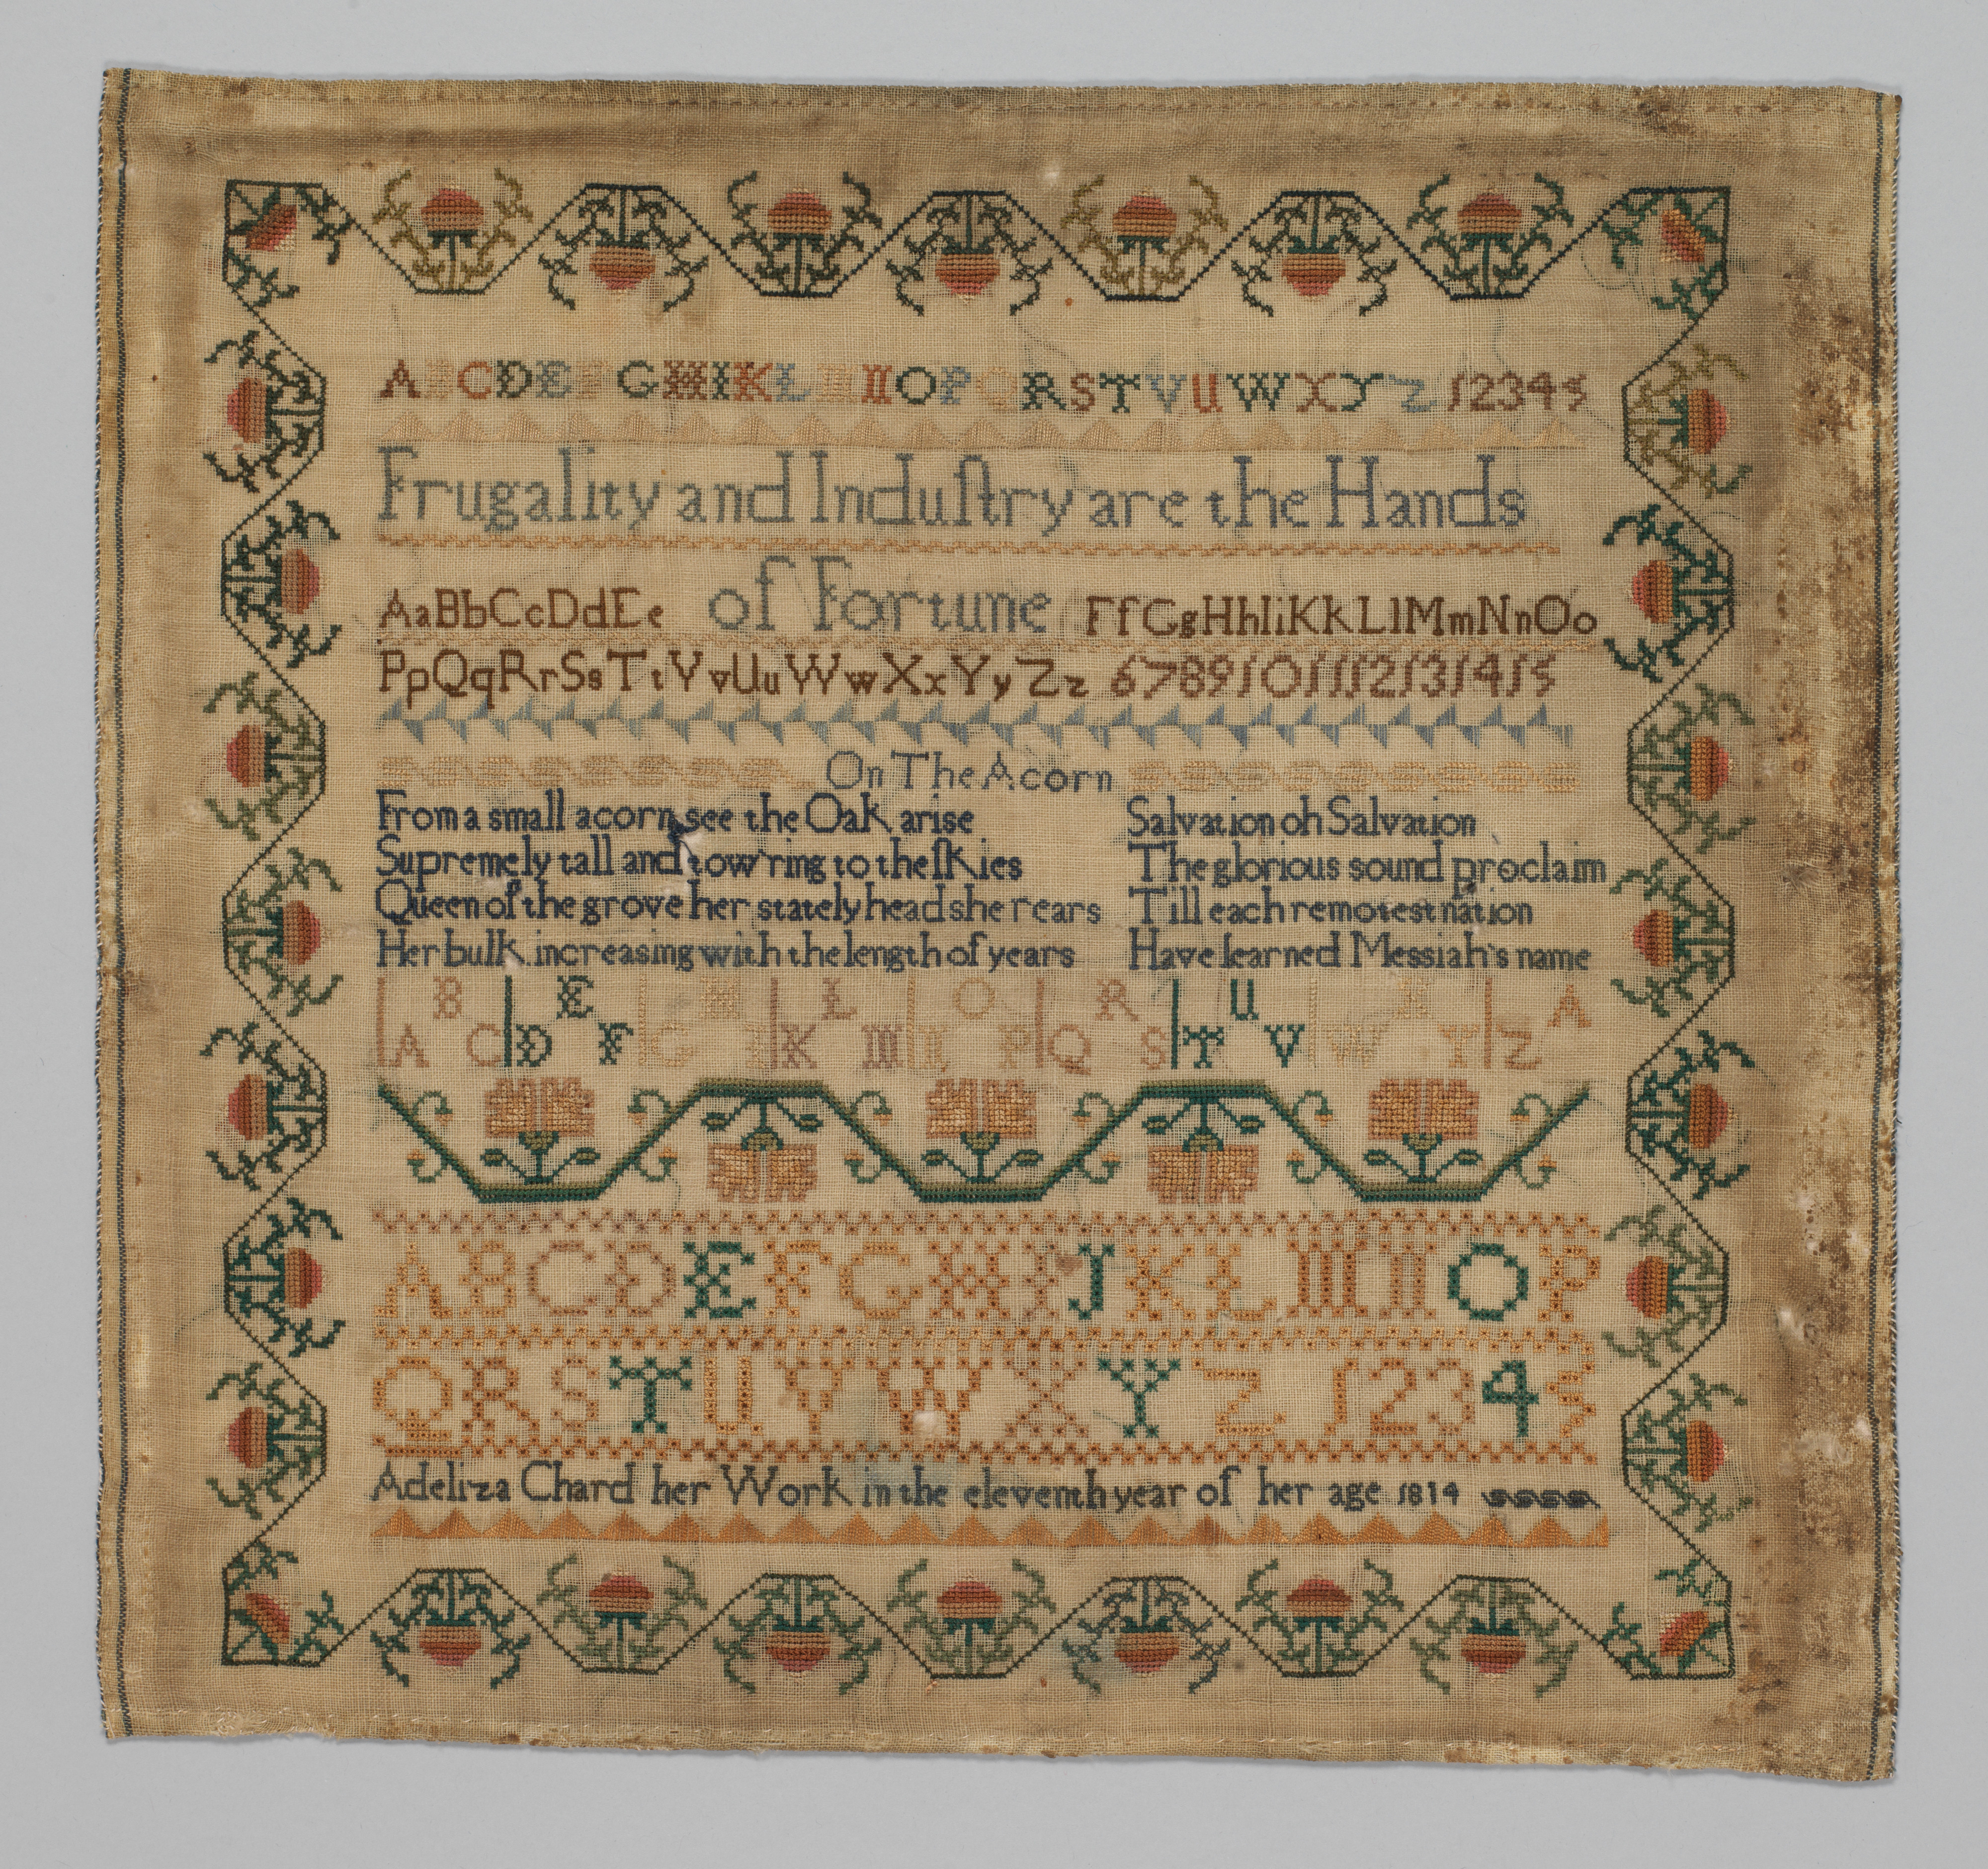 ABCDEFGHIKLMNOPQRSTVUWXYZ 12345
Frugality and Induſtry are the Hands
of Fortune
AaBbCcDdEe FfGgHhIiKkLlMmNnOo
PpQqRrSsTtVvUuWwXxYyZz 6789101112131415
On The Acorn
From a small acorn see the Oak arise
Supremely tall and tow'ring to the ſkies
Queen of the grove her stately head she rears
Her bulk increasing with the length of years
Salvation oh Salvation
The glorious sound proclaim
Till each remotest nation
Have learned Messiah's name
A B C D E F G H I K L M N O P Q R S T U V W X Y Z A
ABCDEFGHIJKLMNOP
QRSTUVWXYZ 12345
Adeliza Chard her Work in the eleventh year of her age 1814